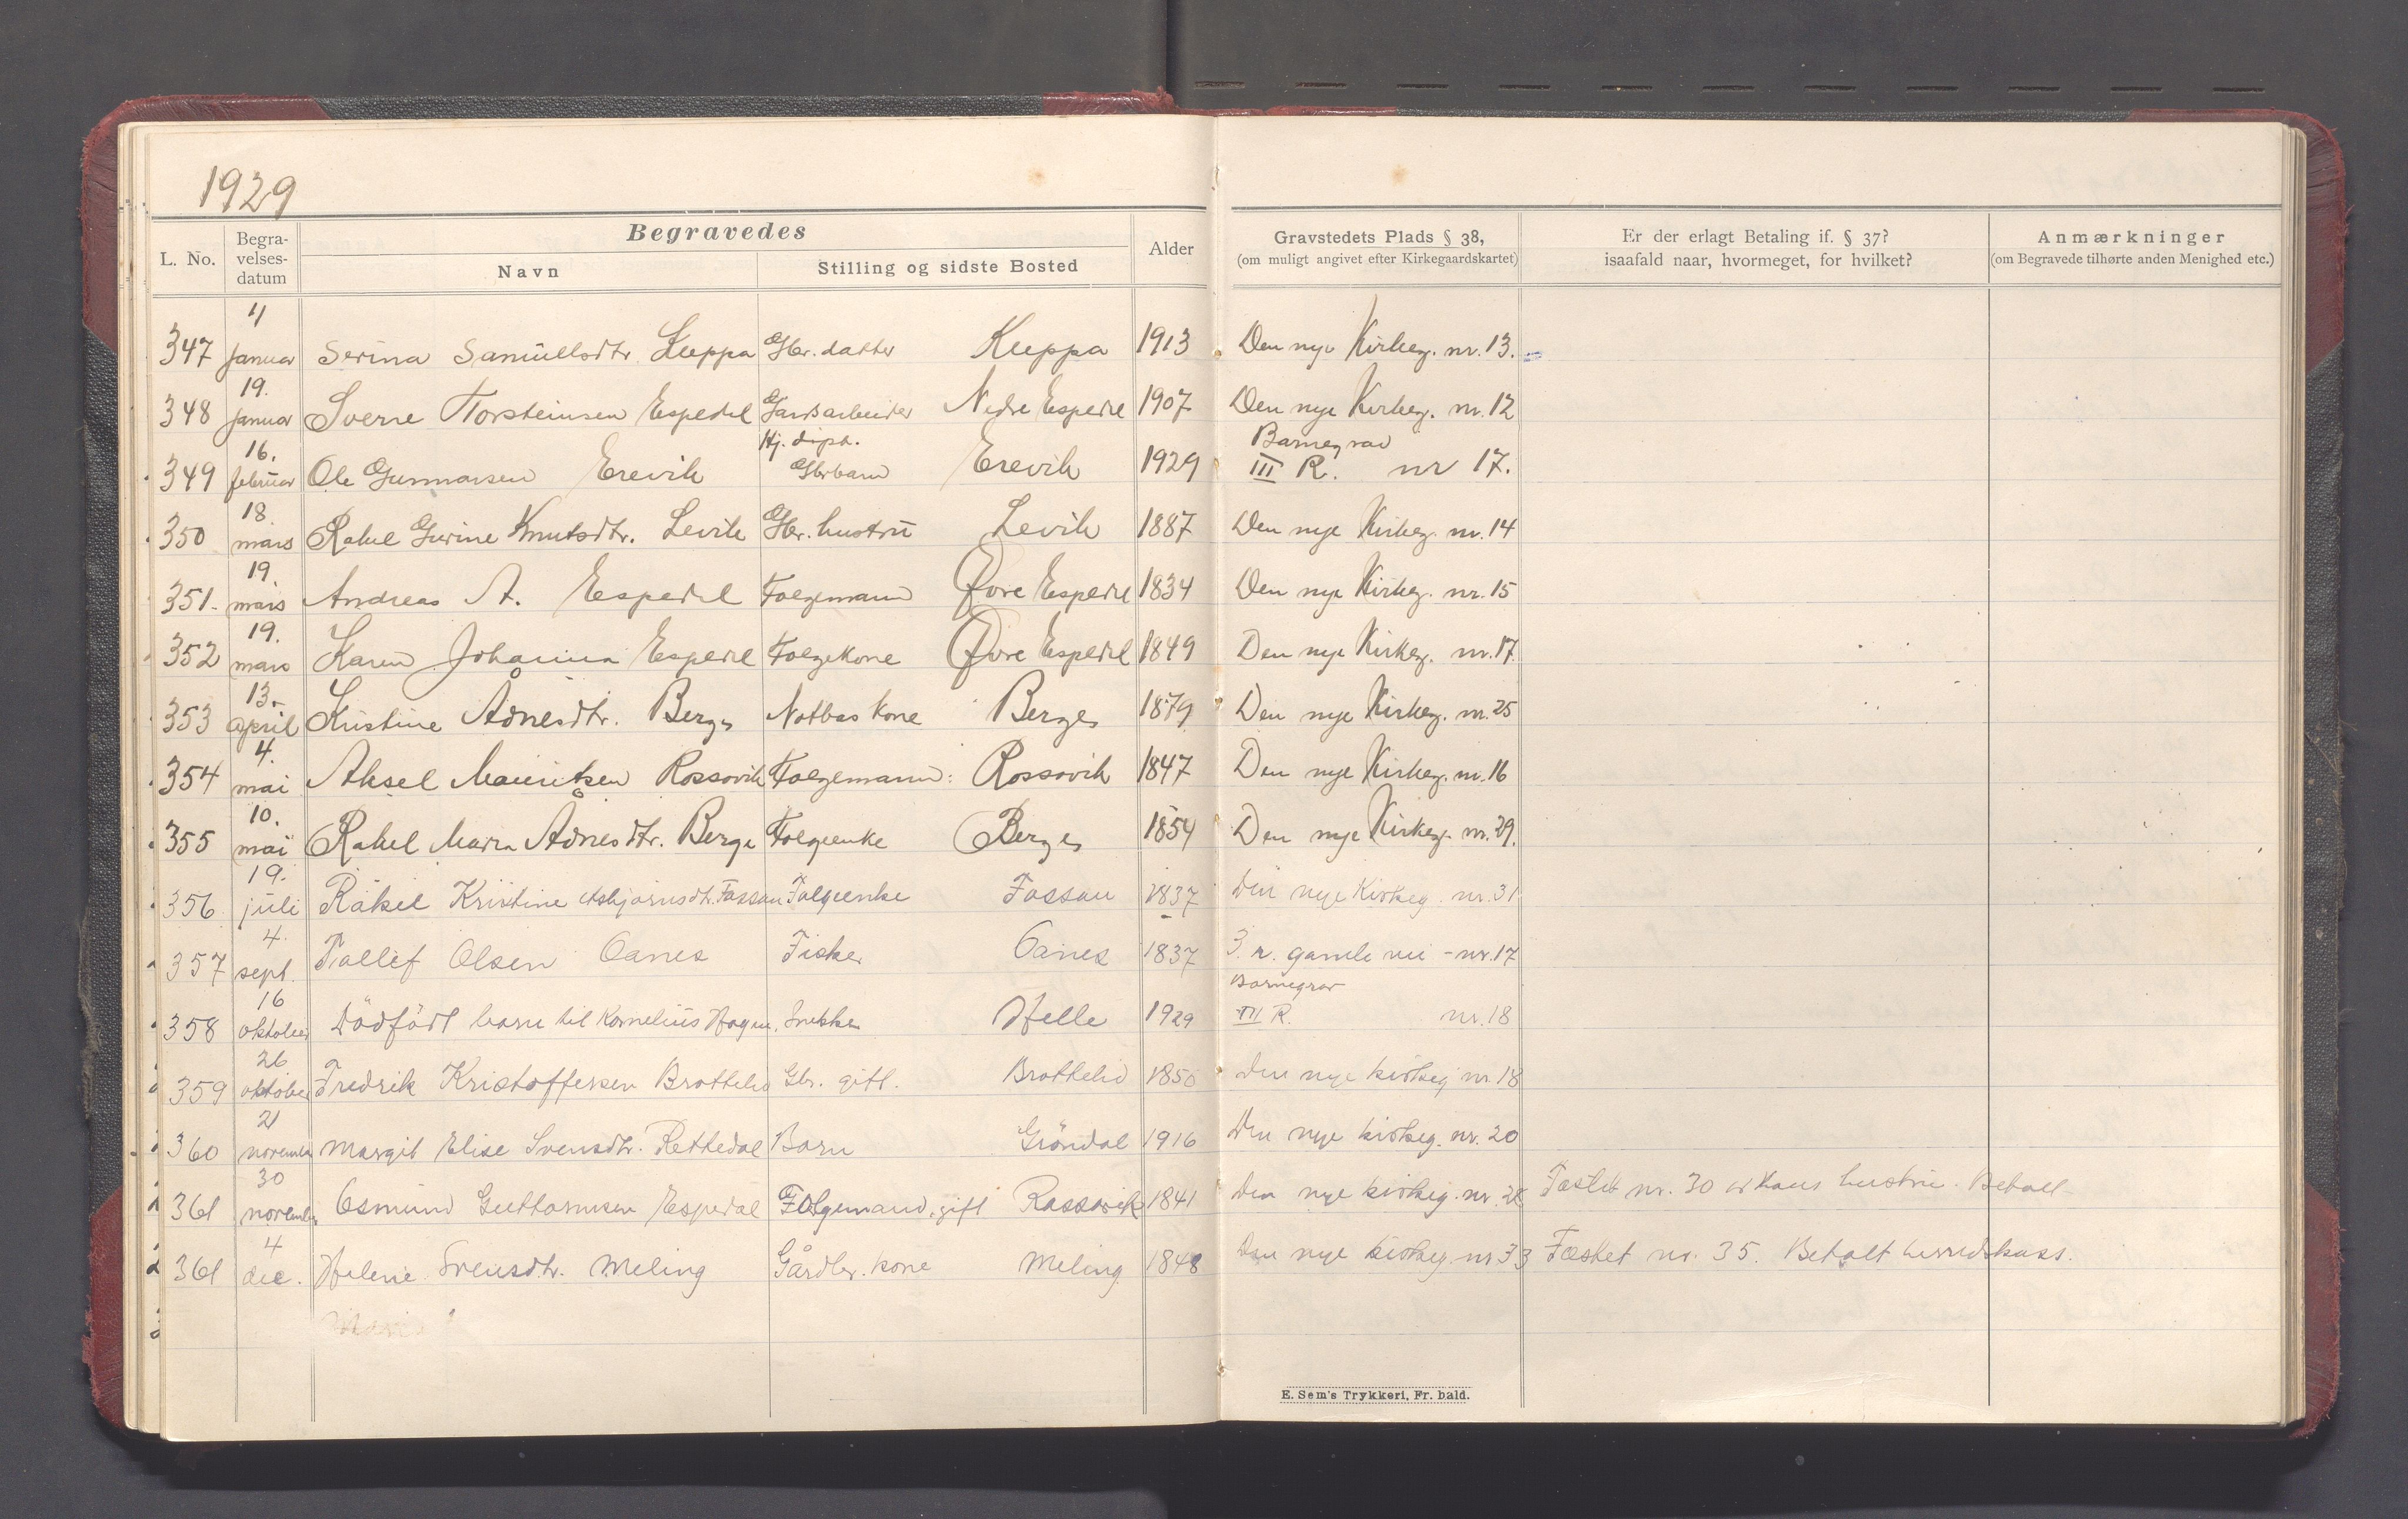 1929
L. No.
Begra-
velses-
datum
Begravedes
Navn
Stilling og sidste Bosted
Alder
Gravstedets Plads § 38,
(om muligt angivet efter Kirkegaardskartet)
Er der erlagt Betaling if. § 37?
isaafald naar, hvormeget, for hvilket?
Anmærkninger
(om Begravede tilhørte anden Menighed etc.)
347 4 Januar Serina Samuelsdtr. Kuppa Gbr. datter Kuppa 1913 Den nye Kirkeg. nr. 13.
348 19. Januar Sverre Torsteinsen Espedal Gardsarbeider Nedre Espedal 1907 Den nye Kirkeg. nr. 12
349 16. februar Ole Gunnarsen Erevik Hj. døpt. Gbr barn Erevik 1929 Barnegrav III R. nr 17.
350 18. mars Rakel Gurine Knutsdtr. Levik Gbr. hustru Levik 1887 Den nye Kirkeg. nr. 14
351. 19. mars Andreas A. Espedal Folgemann Øvre Espedal 1834 Den nye Kirkeg. nr. 15
352 19. mars Karen Johanna Espedal Folgekone Øvre Espedal 1849 Den nye Kirkeg. nr. 17.
353 13. april Kristine Ådnesdtr. Berge Notbas kone Berge 1879 Den nye Kirkeg. nr. 25
354 4. mai Aksel Mauritsen Rossavik Folgemann: Rossavik 1847 Den nye Kirkeg. nr. 16
355 10. mai Rakel Maria Ådnesdtr. Berge Folgeenke Berge 1854 Den nye Kirkeg. nr. 29.
356 19. juli Rakel Kristine Asbjørnsdtr. Fossan Folgeenke Fossan 1837 Den nye Kirkeg. nr. 31
357 4. sept. Tollef Olsen Oanes Fisker Oanes 1837 3. r. gamle vei - nr. 17
358 16 oktober Dödfödt barn til Kornelius Hagen, Snekker Helle 1929 Barnegrav III R. nr. 18
359 26 oktober Fredrik Kristoffersen Brattelid Gbr. gift. Brattelid 1850 Den nye kirkeg nr. 18
360 21 november Margit Elise Svensdtr. Rettedal Barn Gröndal 1916 Den nye kirkeg. nr. 20
361 30 november Osmund Guttormsen Espedal Folgemand, gift Rossavik 1841 Den nye kirkeg. nr. 28 Fæstet nr. 30 hans hustru. Betalt
361 4 dec. Helene Svensdtr. Meling Gårdbr. kone Meling 1848 Den nye kirkeg. nr 33 Fæstet nr. 35. Betalt herredskass.
E. Sem's Trykkeri, Fr. hald.